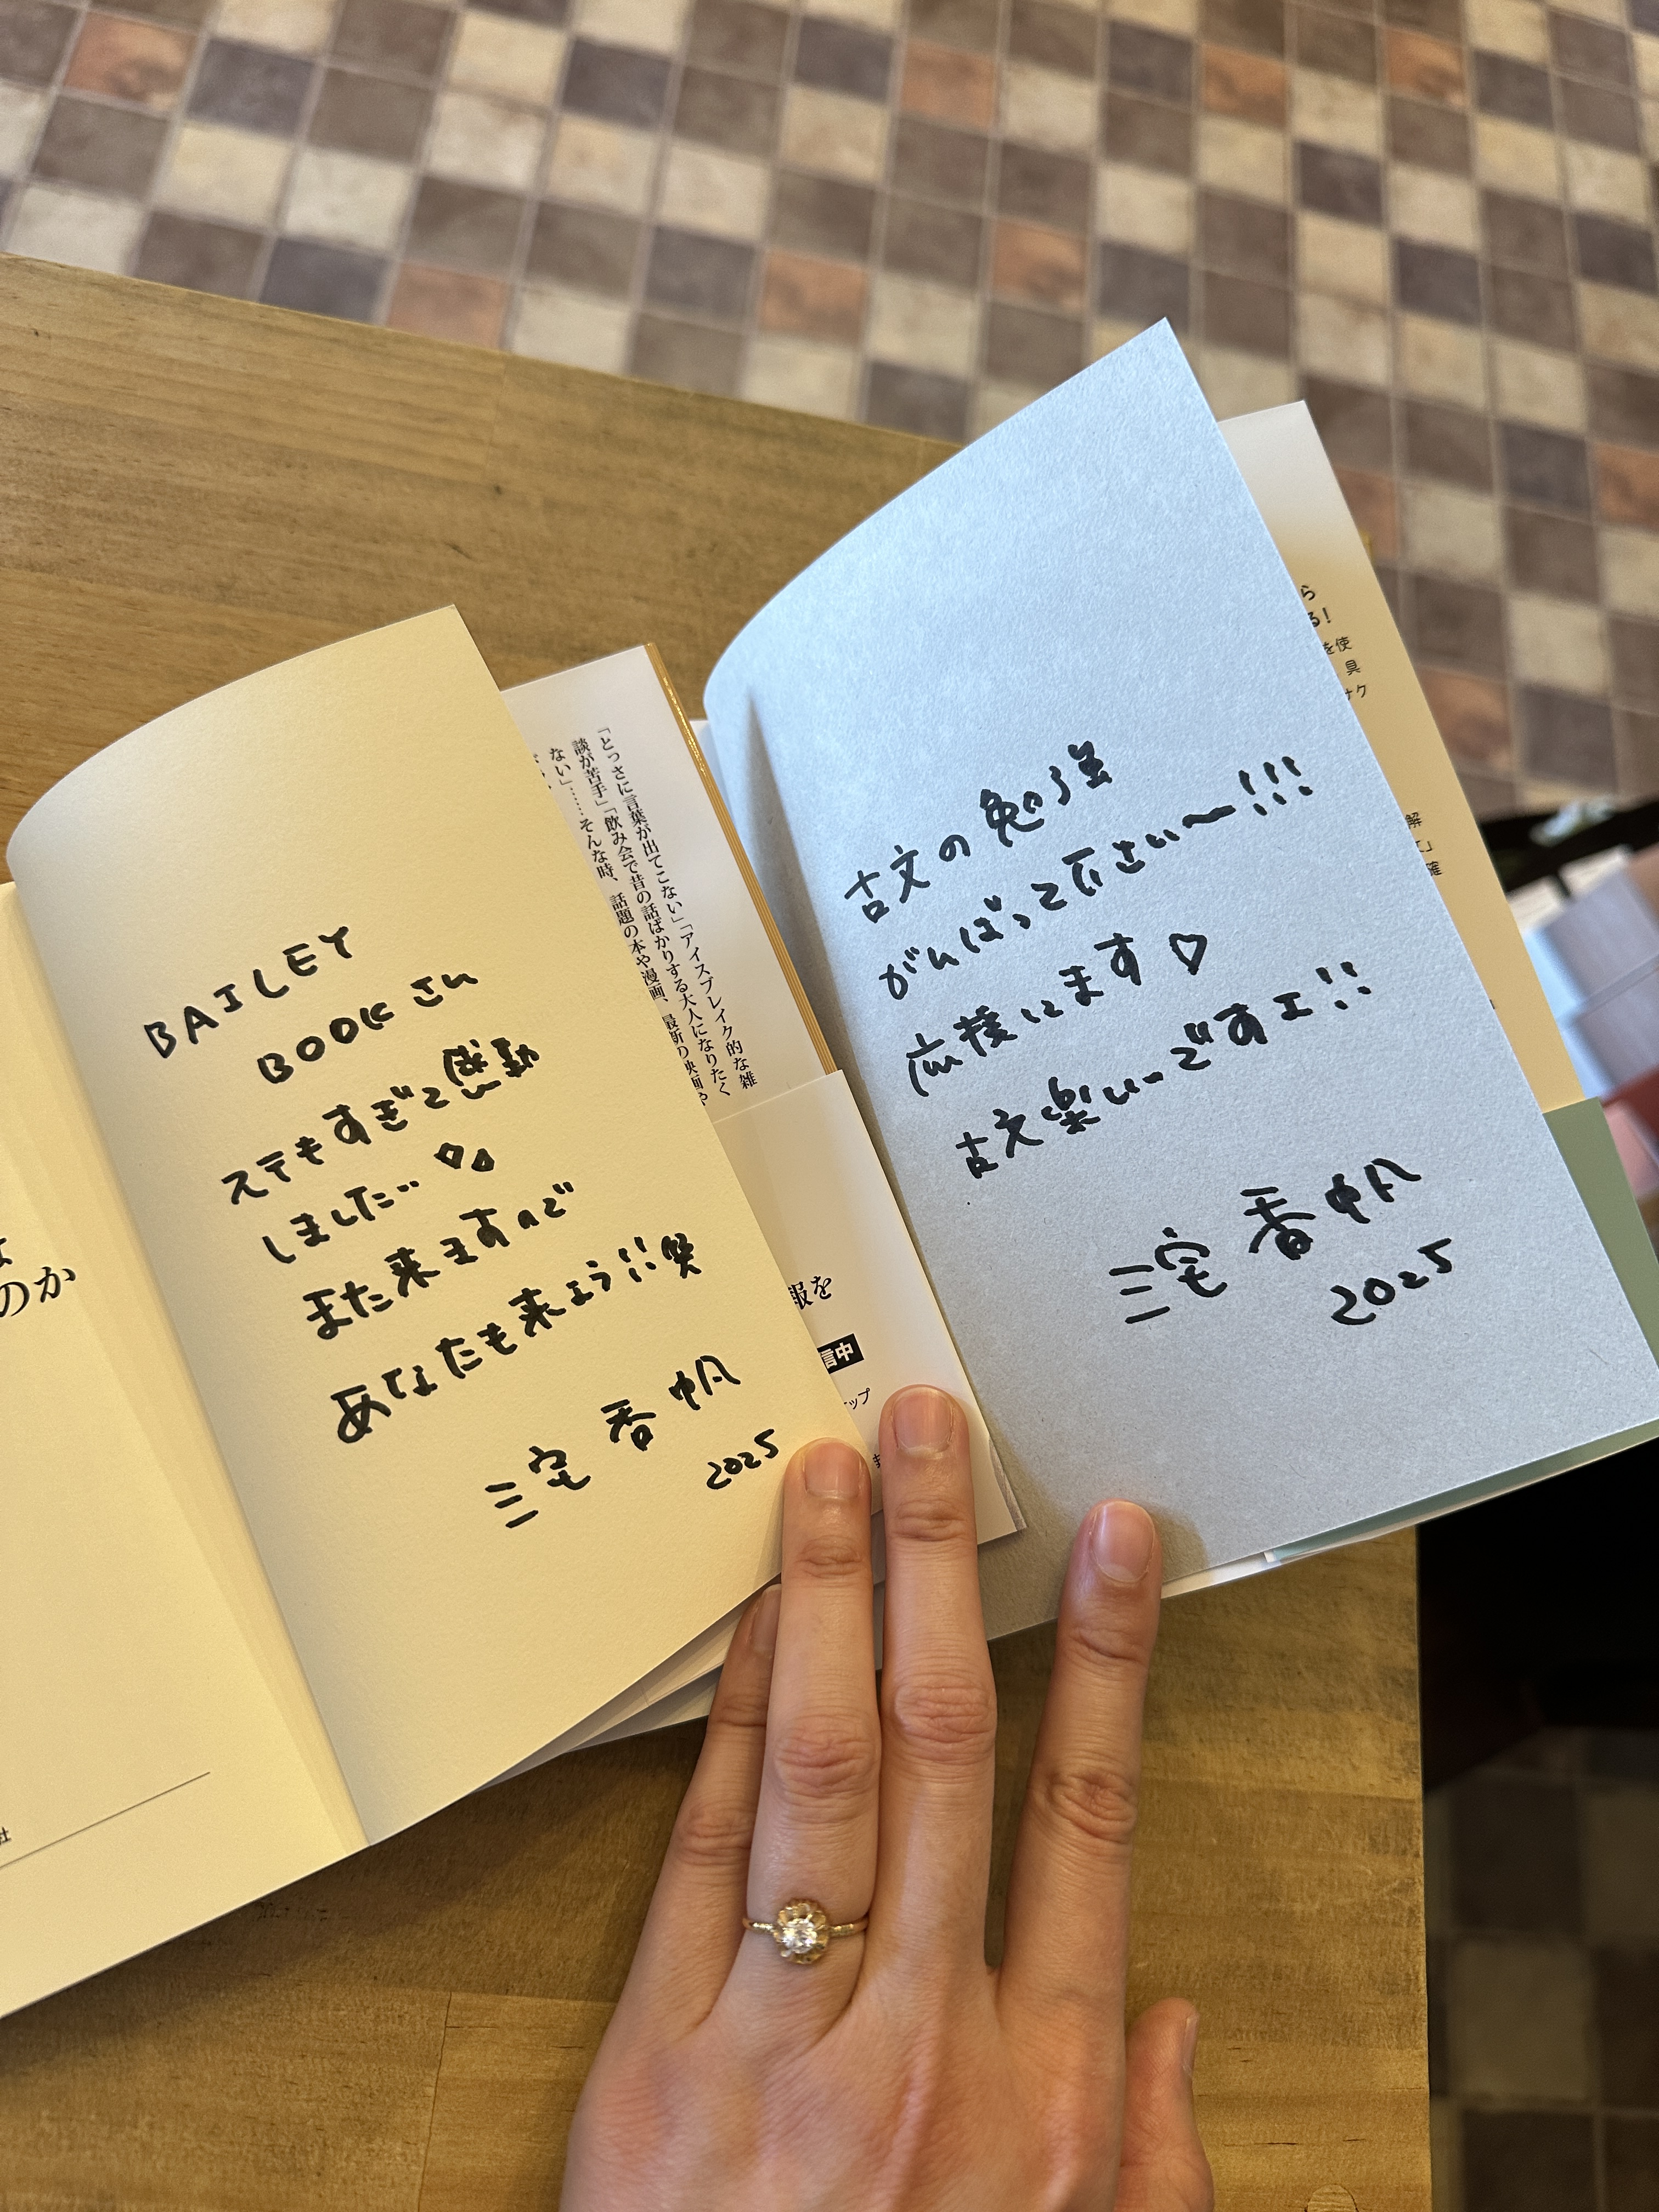 BAILEY
BOOKさん
ステキすぎて感動
しました…♡♡
また来ますので
あなたも来よう!!笑
三宅香帆
2025
古文の勉強
がんばって下さい〜!!!
応援してます♡
古文楽しいですェ!!
三宅香帆
2025
「とっさに言葉が出てこない」「アイスブレイク的な雑
談が苦手」「飲み会で昔の話ばかりする大人になりたく
ない」……そんな時、話題の本や漫画、最新の映画や
のか
報を
信中
ップ
ら
る!
を使
具
ナク
解
確
社